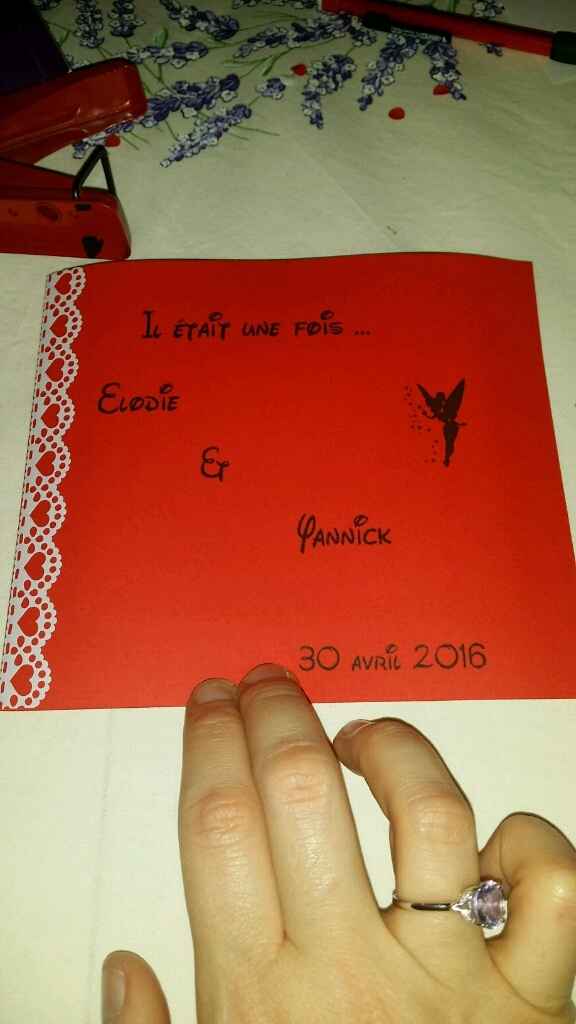 Il était une fois ...
Elodie
&
Yannick
30 avril 2016